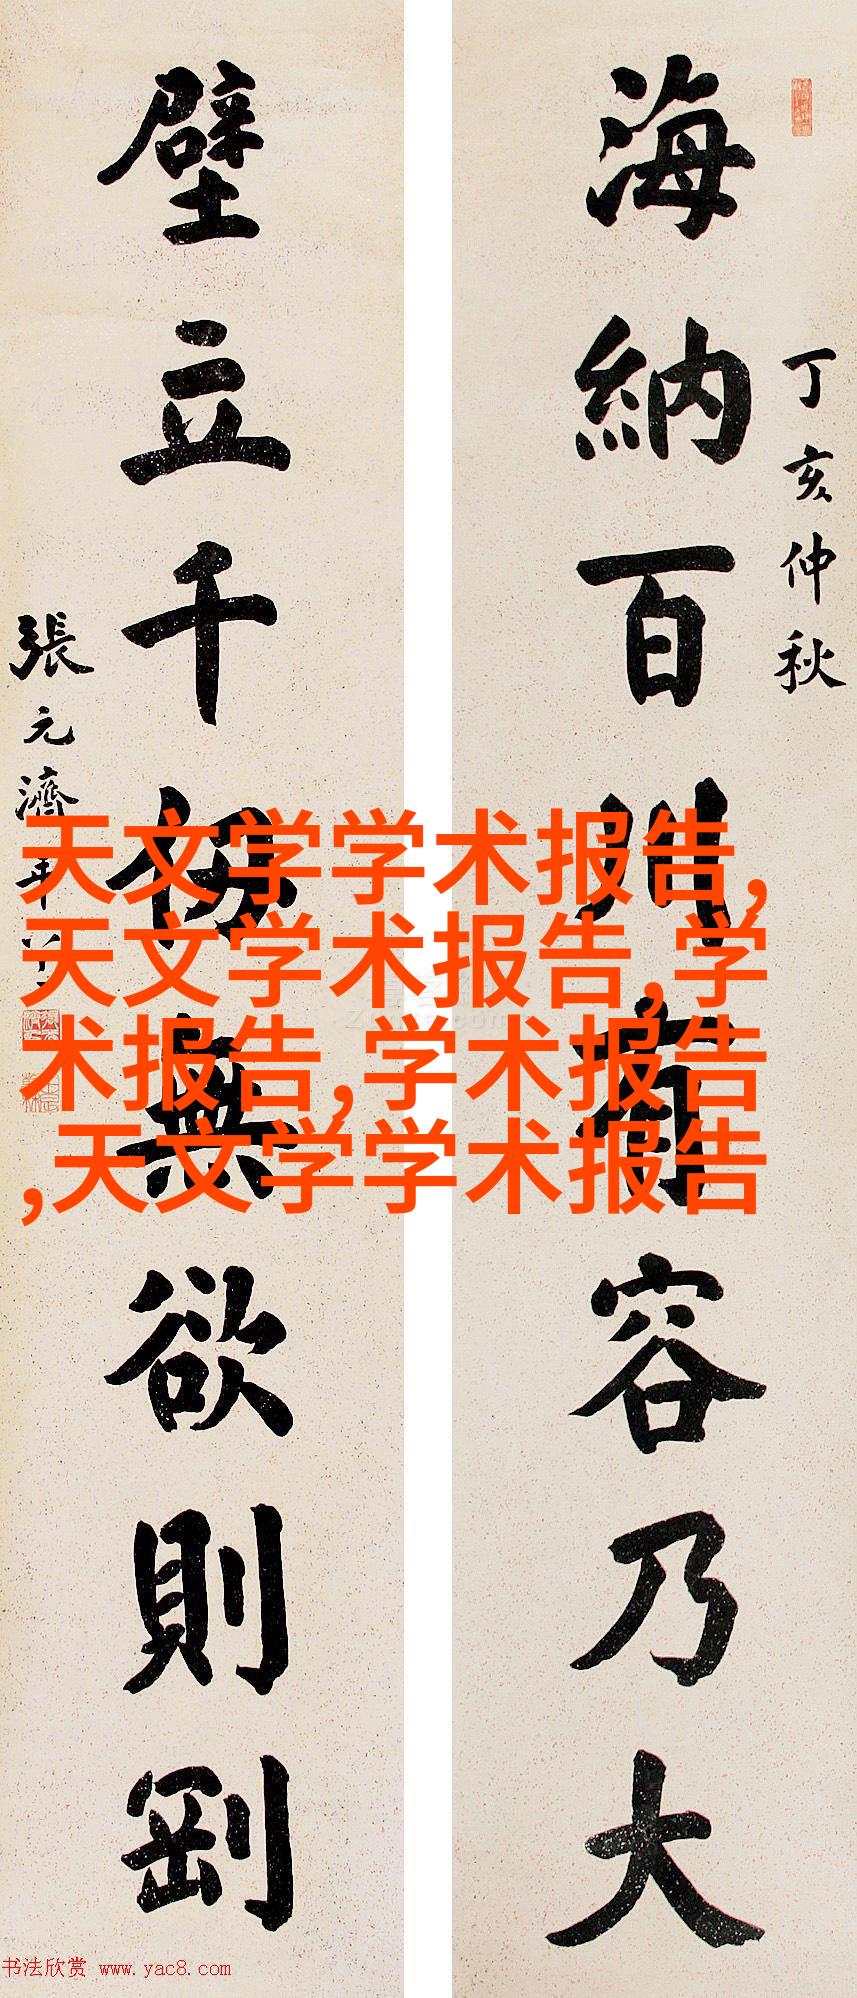 海納百川有容乃大
丁亥仲秋
壁立千仞無欲則剛
張元濟
天文学学术报告,
天文学术报告,学
术报告,学术报告
,天文学学术报告
书法欣赏 www.yac8.com